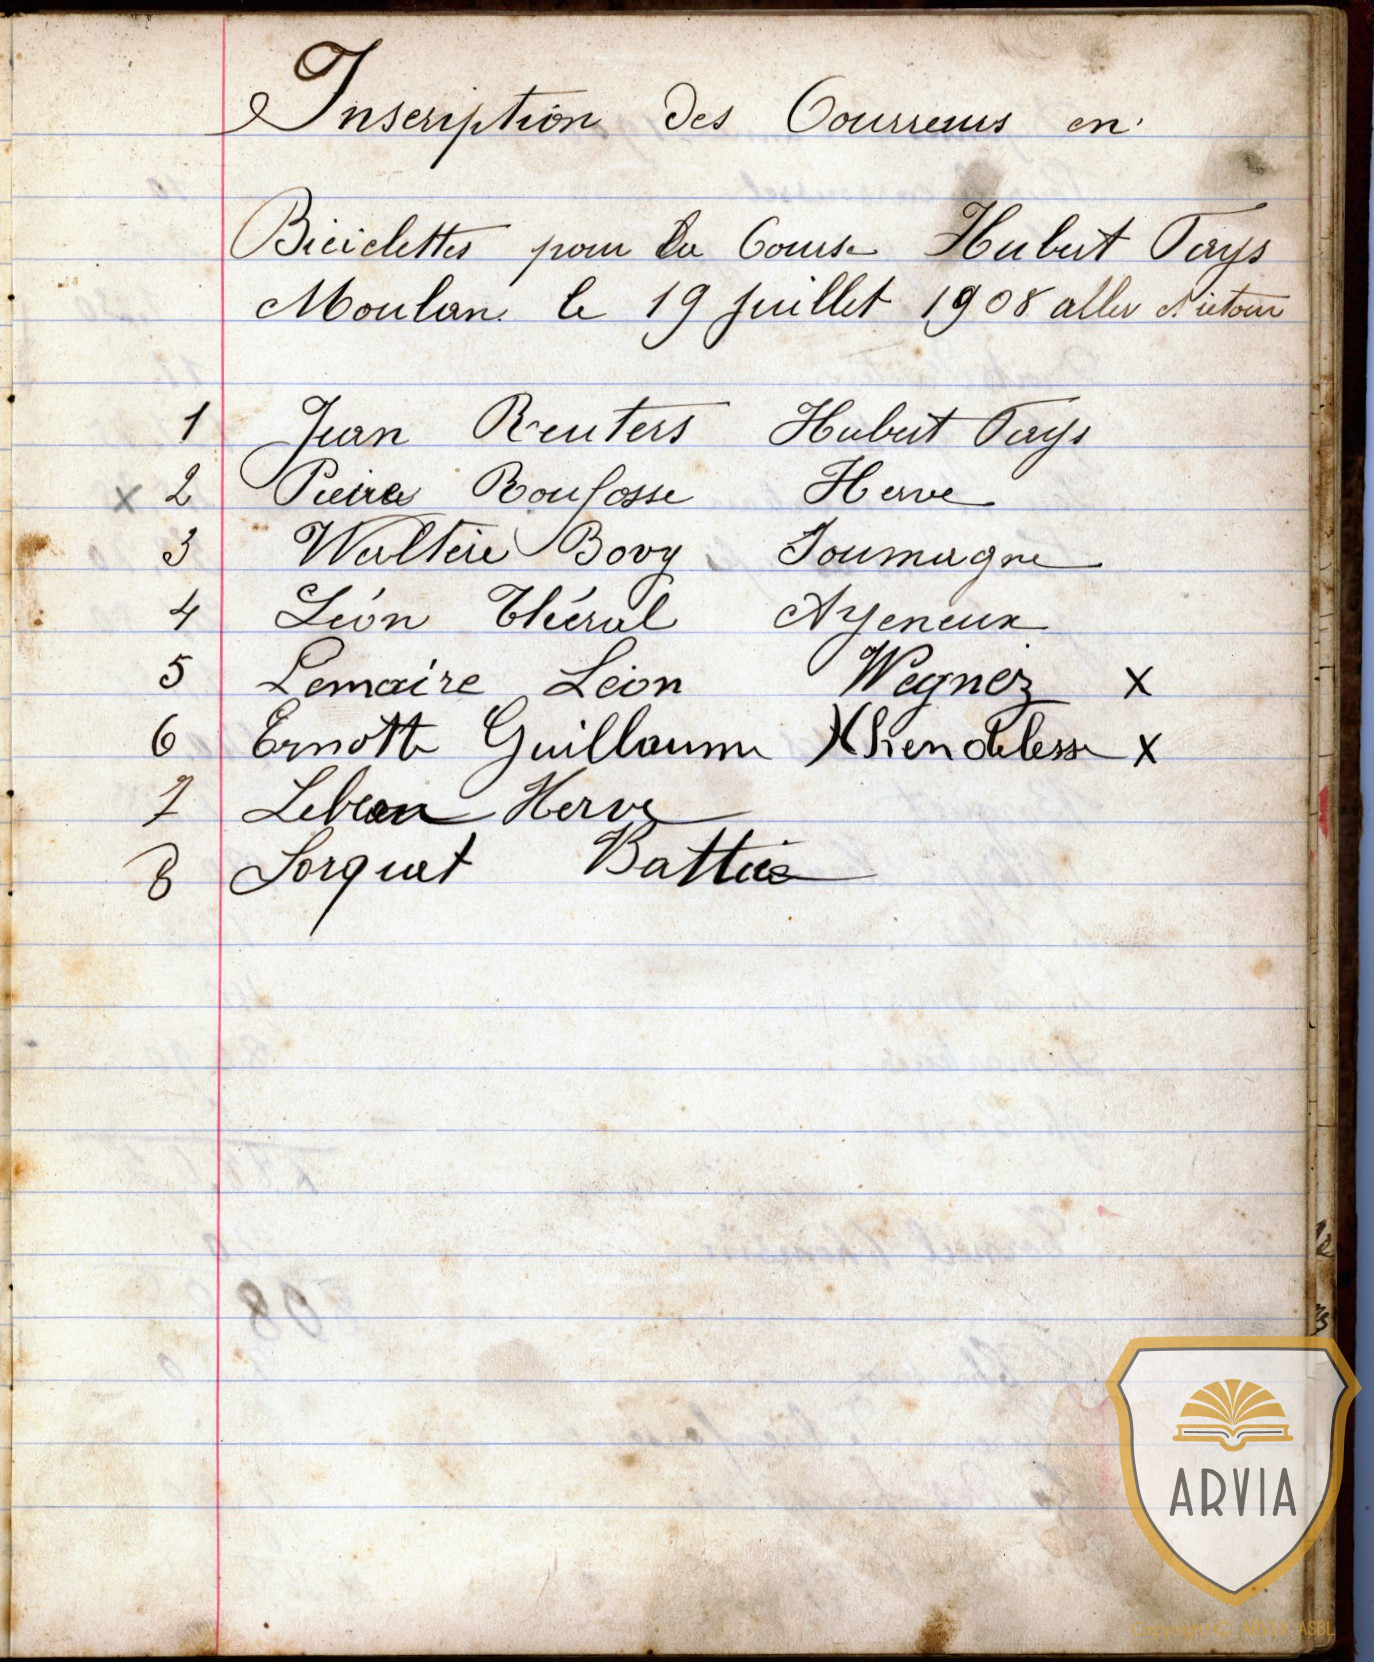 Inscription des Coureurs en
Biciclettes pour la Course Hubert Fays
Moulan le 19 juillet 1908 aller et retour
1 Jean Reuters Hubert Fays
x 2 Pierre Roufosse Herve
3 Waltère Bovy Soumagne
4 Léon Théral Ayeneux
5 Lemaire Léon Wegnez x
6 Ernotte Guillaume Xhendelesse x
7 Herve
8 Sorquet Battice
ARVIA
Copyright © ARVIA ASBL